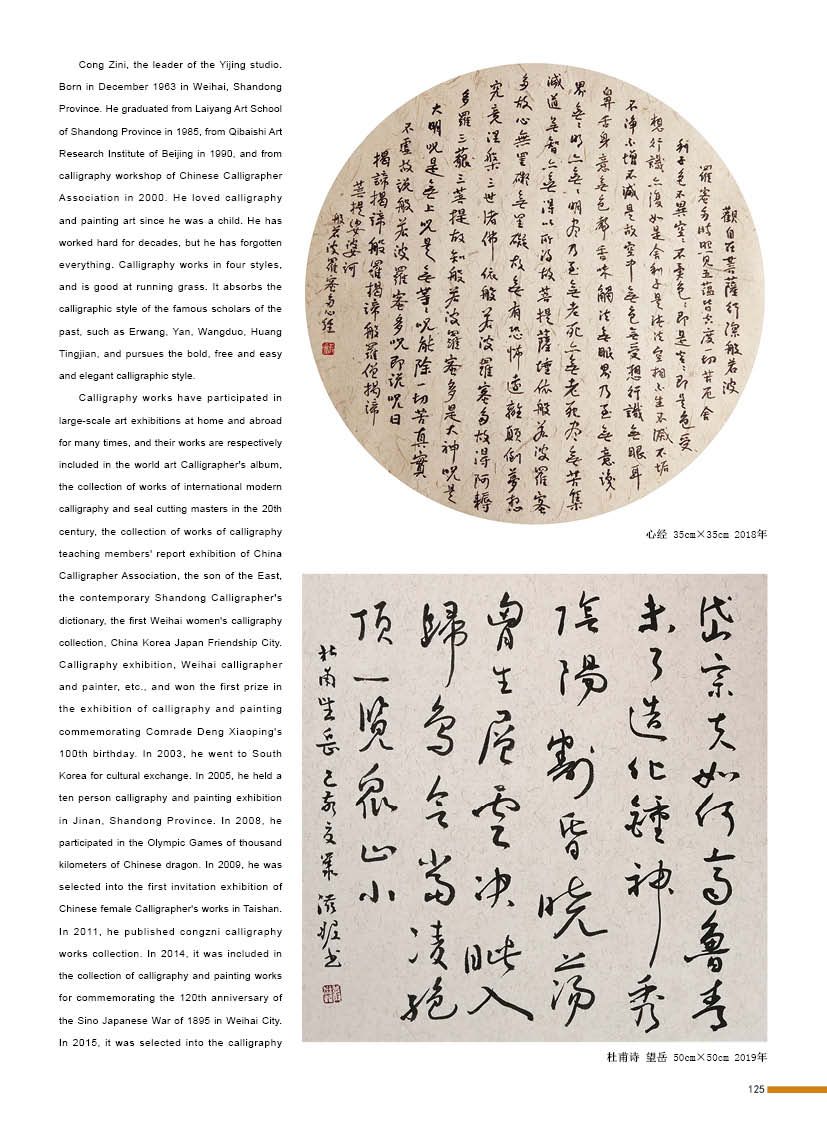 Cong Zini, the leader of the Yijing studio.
Born in December 1963 in Weihai, Shandong
Province. He graduated from Laiyang Art School
of Shandong Province in 1985, from Qibaishi Art
Research Institute of Beijing in 1990, and from
calligraphy workshop of Chinese Calligrapher
Association in 2000. He loved calligraphy
and painting art since he was a child. He has
worked hard for decades, but he has forgotten
everything. Calligraphy works in four styles,
and is good at running grass. It absorbs the
calligraphic style of the famous scholars of the
past, such as Erwang, Yan, Wangduo, Huang
Tingjian, and pursues the bold, free and easy
and elegant calligraphic style.
Calligraphy works have participated in
large-scale art exhibitions at home and abroad
for many times, and their works are respectively
included in the world art Calligrapher's album,
the collection of works of international modern
calligraphy and seal cutting masters in the 20th
century, the collection of works of calligraphy
teaching members' report exhibition of China
Calligrapher Association, the son of the East,
the contemporary Shandong Calligrapher's
dictionary, the first Weihai women's calligraphy
collection, China Korea Japan Friendship City.
Calligraphy exhibition, Weihai calligrapher
and painter, etc., and won the first prize in
the exhibition of calligraphy and painting
commemorating Comrade Deng Xiaoping's
100th birthday. In 2003, he went to South
Korea for cultural exchange. In 2005, he held a
ten person calligraphy and painting exhibition
in Jinan, Shandong Province. In 2008, he
participated in the Olympic Games of thousand
kilometers of Chinese dragon. In 2009, he was
selected into the first invitation exhibition of
Chinese female Calligrapher's works in Taishan.
In 2011, he published congzni calligraphy
works collection. In 2014, it was included in
the collection of calligraphy and painting works
for commemorating the 120th anniversary of
the Sino Japanese War of 1895 in Weihai City.
In 2015, it was selected into the calligraphy
觀自在菩薩行深般若波
羅蜜多時照見五蘊皆空度一切苦厄舍
利子色不異空空不異色色即是空空即是色受
想行識亦復如是舍利子是諸法空相不生不滅不垢
不淨不增不減是故空中無色無受想行識無眼耳
鼻舌身意無色聲香味觸法無眼界乃至無意識
界無無明亦無無明盡乃至無老死亦無老死盡無苦集
滅道無智亦無得以所得故菩提薩埵依般若波羅蜜
多故心無罣礙無罣礙故無有恐怖遠離顛倒夢想
究竟涅槃三世諸佛依般若波羅蜜多故得阿耨
多羅三藐三菩提故知般若波羅蜜多是大神咒是
大明咒是無上咒是無等等咒能除一切苦真實
不虛故說般若波羅蜜多咒即說咒曰
揭諦揭諦般羅揭諦般羅僧揭諦
菩提娑婆訶
般若波羅蜜多心經
心经 35cm×35cm 2018年
岱宗夫如何齊魯青
未了造化鍾神秀
陰陽割昏曉蕩
胸生層雲決眦入
歸鳥會當凌絕
頂一覽眾山小
杜甫望岳 己亥夏
杜甫诗 望岳 50cm×50cm 2019年
125